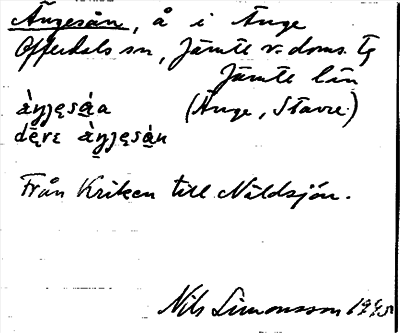 Ängesån, å i Änge
Offerdals sn, Jämte v. doms. tg
Jämte län
àŋjęsa̱a (Änge, Stavre)
dę̄rɛ àŋjęsa̱n
Från Kriken till Näldsjön.
Nils Simonsson 1945